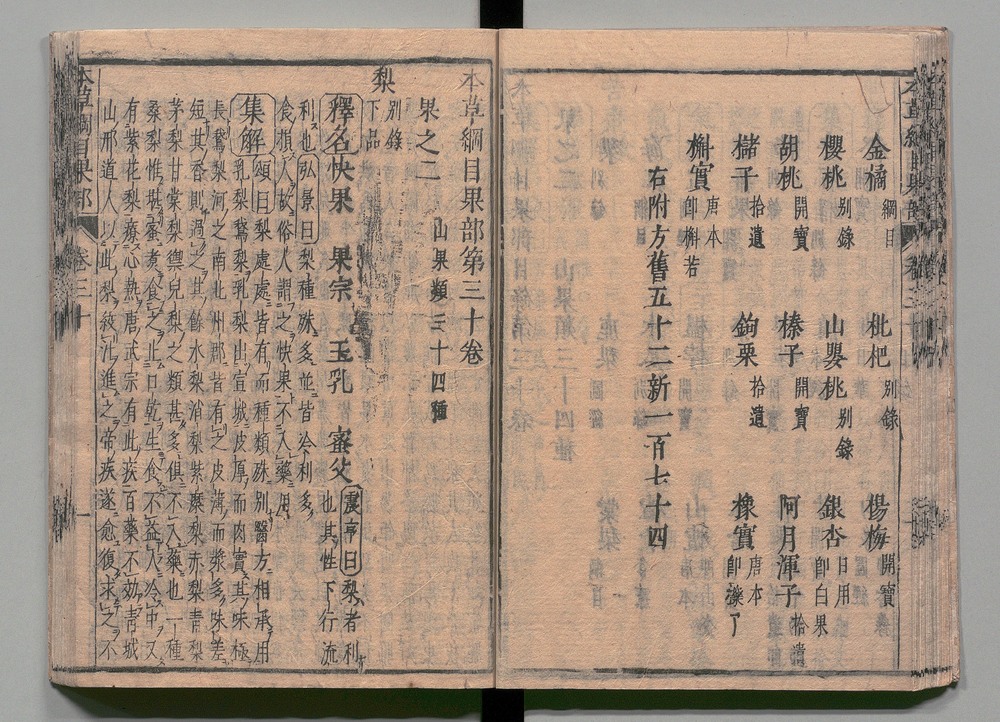 金橘 綱目 枇杷 别錄 楊梅 開寶
櫻桃 别錄 山嬰桃 别錄 銀杏 日用 卽白果
胡桃 開寶 榛子 開寶 阿月渾子 拾遺
櫧子 拾遺 鉤栗 拾遺 橡實 唐本 卽櫟子
槲實 唐本 卽槲若
右附方舊五十二新一百七十四
本草綱目果部第三十卷
果之二 山果類三十四種
梨 别錄下品
釋名 快果 果宗 玉乳 蜜父 震亨曰梨者利也其性下行流
利也弘景曰梨種殊多並皆冷利多
食損人故俗人謂之快果不入藥用
集解 頌曰梨處處皆有而種類殊别醫方相承用
乳梨鵞梨乳梨出宣城皮厚而肉實其味極
長鵞梨河之南北州郡皆有之皮薄而漿多味差
短其香則過之其餘水梨消梨紫糜梨赤梨青梨
茅梨甘棠梨禦兒梨之類甚多俱不入藥也一種
桑梨惟堪蜜煮食之止口乾生食不益人冷中又
有紫花梨療心熱唐武宗有此疾百藥不效青城
山邢道人以此梨絞汁進之帝疾遂愈復求之不
本草綱目果部 卷三十